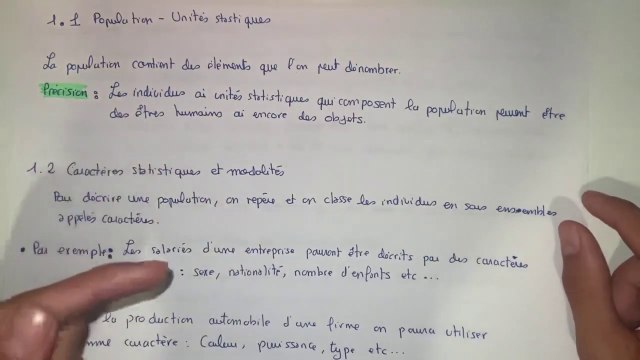 1.1 Population - Unités stastiques
La population contient des éléments que l'on peut dénombrer.
Précision : Les individus ou unités statistiques qui composent la population peuvent être
des êtres humains ou encore des objets.
1.2 Caractères statistiques et modalités
Pour décrire une population, on repère et on classe les individus en sous ensembles
appelés caractères.
• Par exemple : Les salariés d'une entreprise pourront être décrits par des caractères
: sexe, nationalité, nombre d'enfants etc ...
la production automobile d'une firme on pourra utiliser
comme caractère : Couleur, puissance, type etc ...